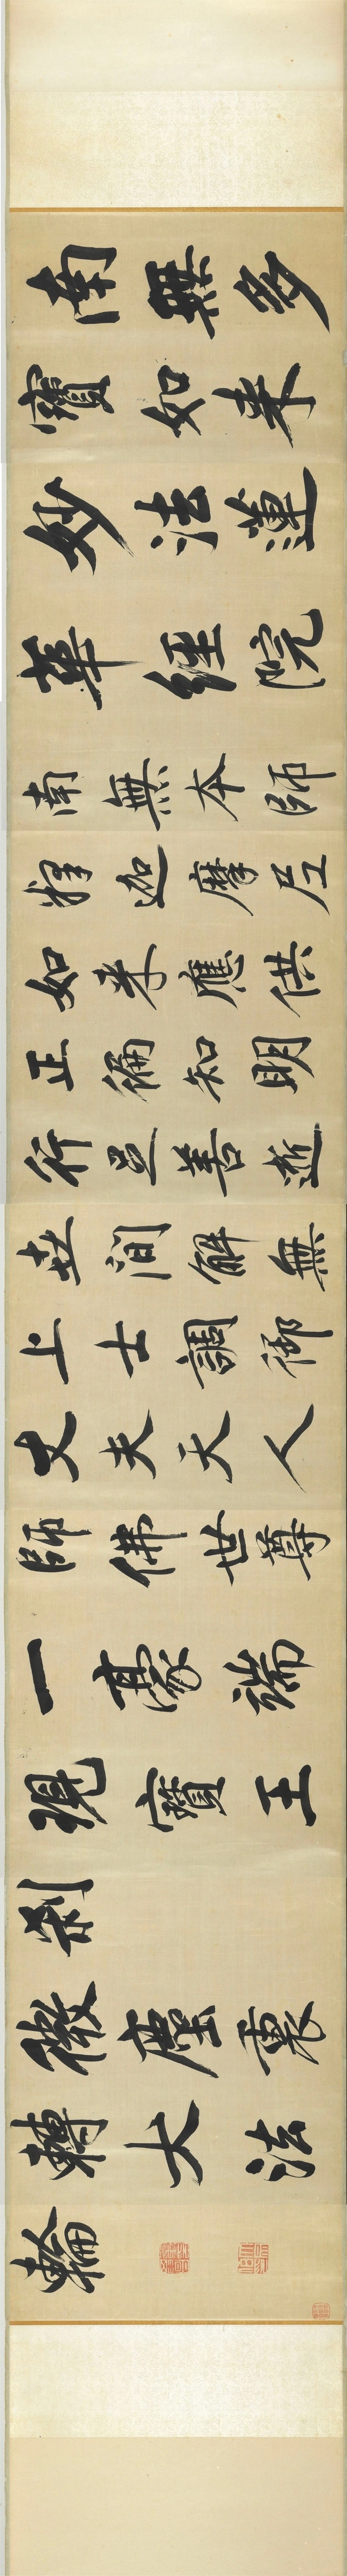 南無多
寶如来
妙法蓮
華經院
南無本師
釋迦摩尼
如来應供
正徧知明
行足善逝
世間解無
上士調御
丈夫天人
師佛世尊
一毫端
現寶王
刹
微塵裏
轉大法
輪